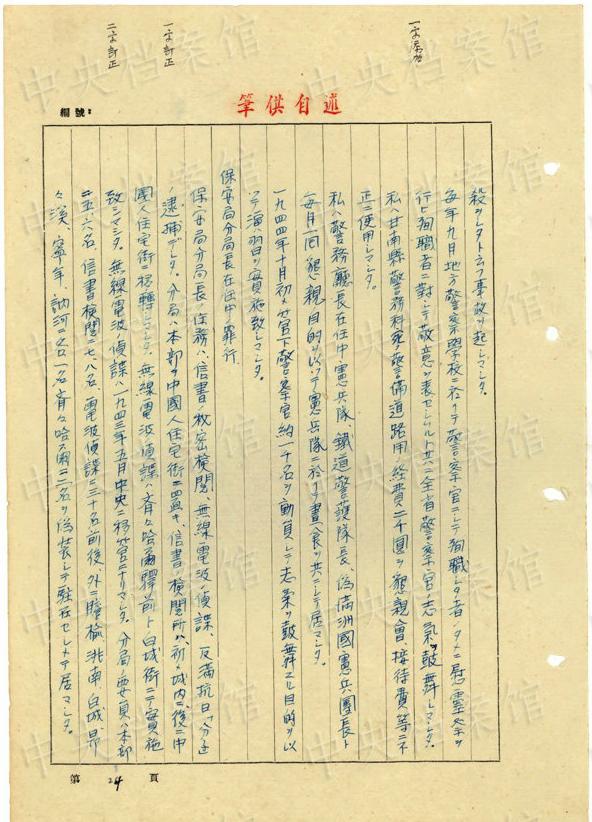 一字訂正
一字訂正
二字訂正
述自供筆
編號：
殺サレタト云フ事故ガ起シマシタ。
毎年九月地方警察学校ニ於イテ警察官ニシテ殉職シタ者ノタメニ慰霊祭ヲ
行ヒ殉職者ニ対シテ敬意ヲ表セシムルト共ニ全省警察官ノ志気ヲ鼓舞シマシタ。
私ハ甘南縣警務科宛警備道路用ノ経費二千圓ヲ懇親會、接待費等ニ不
正ニ使用シマシタ。
私ハ警務廳長在任中憲兵隊、鐵道警護隊長、偽満洲國憲兵團長ト
毎月一回懇親ノ目的ヲ以ッテ憲兵隊ニ於イテ晝食ヲ共ニシテ居マシタ。
一九四四年十月初メ管下警察官約一千名ヲ動員シテ志気ヲ鼓舞スル目的ヲ以
ッテ演習ヲ実施致シマシタ。
保安局分局長在任中ノ罪行
保安局分局長ノ任務ハ、信書ノ秘密検閲、無線電波ノ偵諜、反満抗日分子
ノ逮捕デシタ。分局ハ本部ヲ中國人住宅街ニ置キ、信書ノ検閲所ハ初メ城内ニ後ニ中
國人住宅街ニ移轉シマシタ。無線電波ノ偵諜ハ斉々哈爾驛前ト白城街ニテ実施
致シマシタ。無線電波偵諜ハ一九四三年五月中央ニ移管ニナリマシタ。分局要員ハ本部
ニ五、六名、信書検閲ニ七、八名、電波偵諜ニ三十名前後、外ニ瞻榆、洮南、白城、景
々溪、寧年、訥河ニ各一名斉々哈爾ニ二名ヲ偽装シテ駐在セシメテ居マシタ。
第 24 頁
中央档案馆